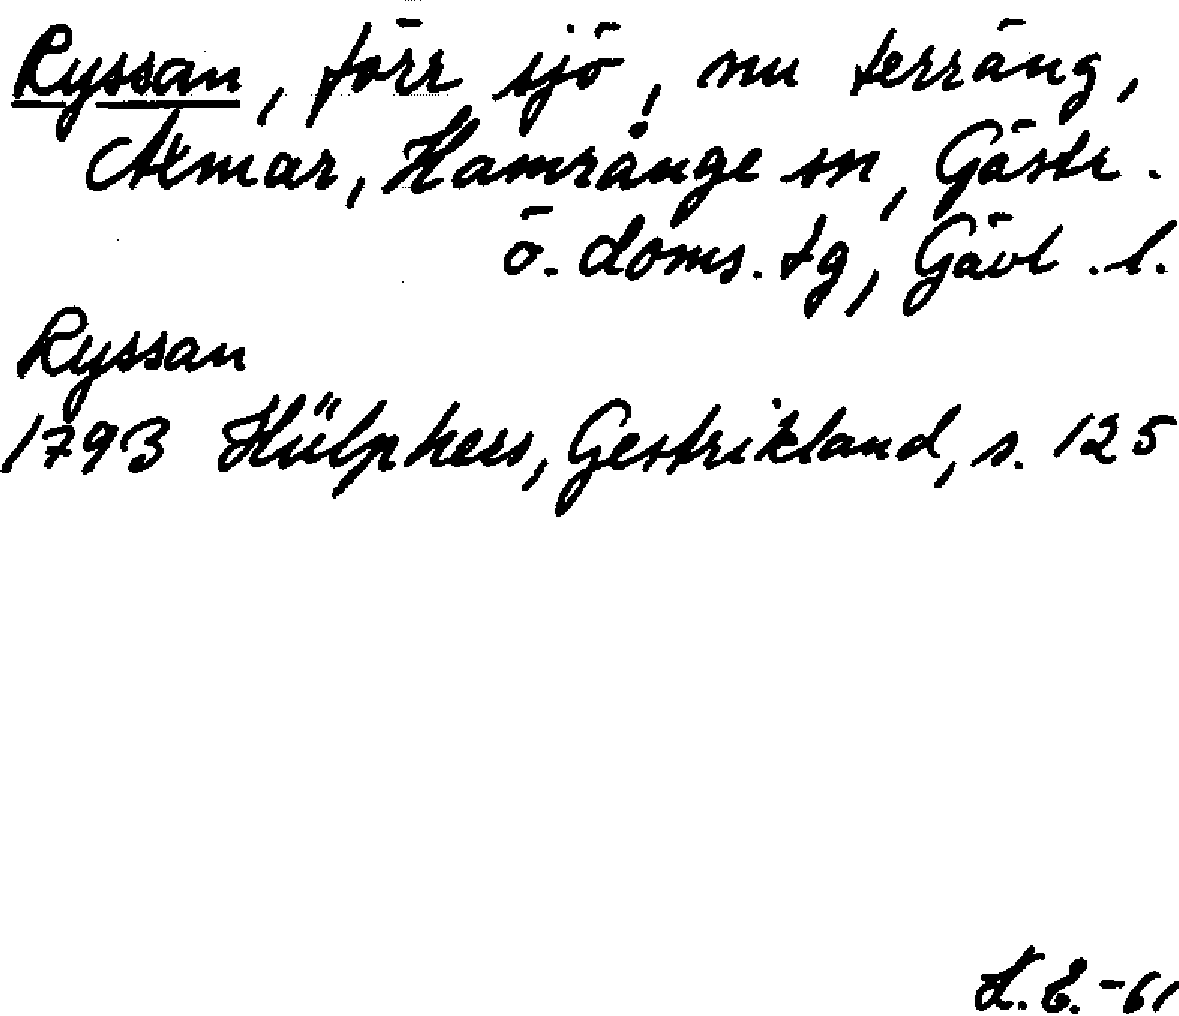 Ryssan, förr sjö, nu terräng,
Axmar, Hamrånge sn, Gästr.
ö. doms. tg, Gävl. l.
Ryssan
1793 Hülphers, Gestrikland, s. 125
K.E.-61